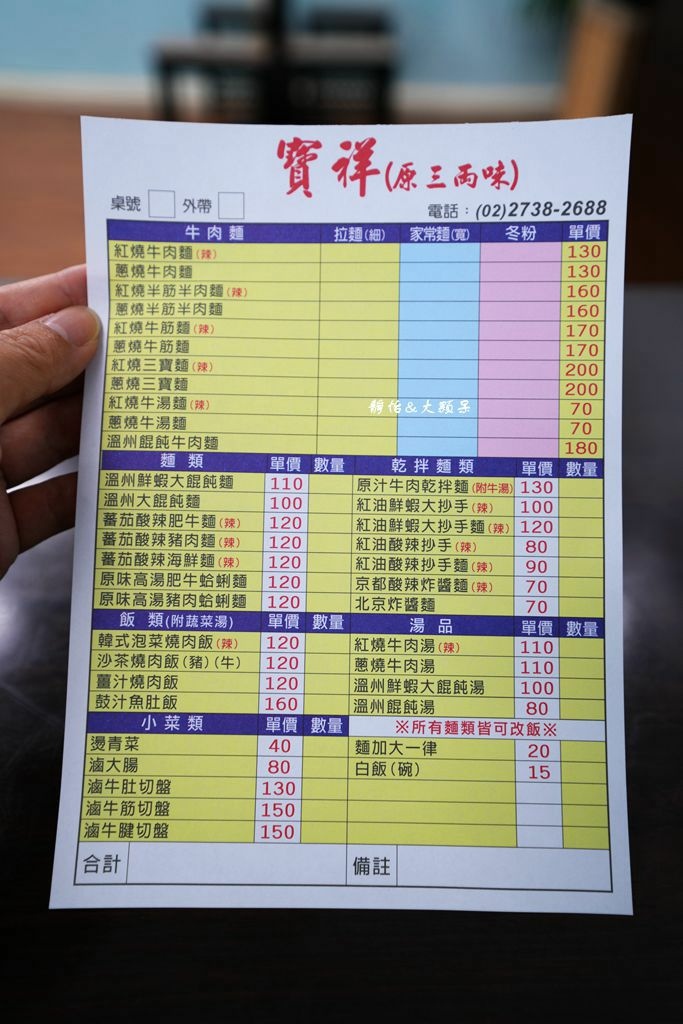 寶祥(原三兩味)
桌號 外帶 電話:(02)2738-2688
牛肉麵 拉麵(細) 家常麵(寬) 冬粉 單價
紅燒牛肉麵(辣) 130
蔥燒牛肉麵 130
紅燒半筋半肉麵(辣) 160
蔥燒半筋半肉麵 160
紅燒牛筋麵(辣) 170
蔥燒牛筋麵 170
紅燒三寶麵(辣) 200
蔥燒三寶麵 200
紅燒牛湯麵(辣) 70
蔥燒牛湯麵 70
溫州餛飩牛肉麵 180
麵類 單價 數量 乾拌麵類 單價 數量
溫州鮮蝦大餛飩麵 110 原汁牛肉乾拌麵(附牛湯) 130
溫州大餛飩麵 100 紅油鮮蝦大抄手(辣) 100
蕃茄酸辣肥牛麵(辣) 120 紅油鮮蝦大抄手麵(辣) 120
蕃茄酸辣豬肉麵(辣) 120 紅油酸辣抄手(辣) 80
蕃茄酸辣海鮮麵(辣) 120 紅油酸辣抄手麵(辣) 90
原味高湯肥牛蛤蜊麵 120 京都酸辣炸醬麵(辣) 70
原味高湯豬肉蛤蜊麵 120 北京炸醬麵 70
飯類(附蔬菜湯) 單價 數量 湯品 單價 數量
韓式泡菜燒肉飯(辣) 120 紅燒牛肉湯(辣) 110
沙茶燒肉飯(豬)(牛) 120 蔥燒牛肉湯 110
薑汁燒肉飯 120 溫州鮮蝦大餛飩湯 100
鼓汁魚肚飯 160 溫州餛飩湯 80
小菜類 單價 數量 ※所有麵類皆可改飯※
燙青菜 40 麵加大一律 20
滷大腸 80 白飯(碗) 15
滷牛肚切盤 130
滷牛筋切盤 150
滷牛腱切盤 150
合計 備註